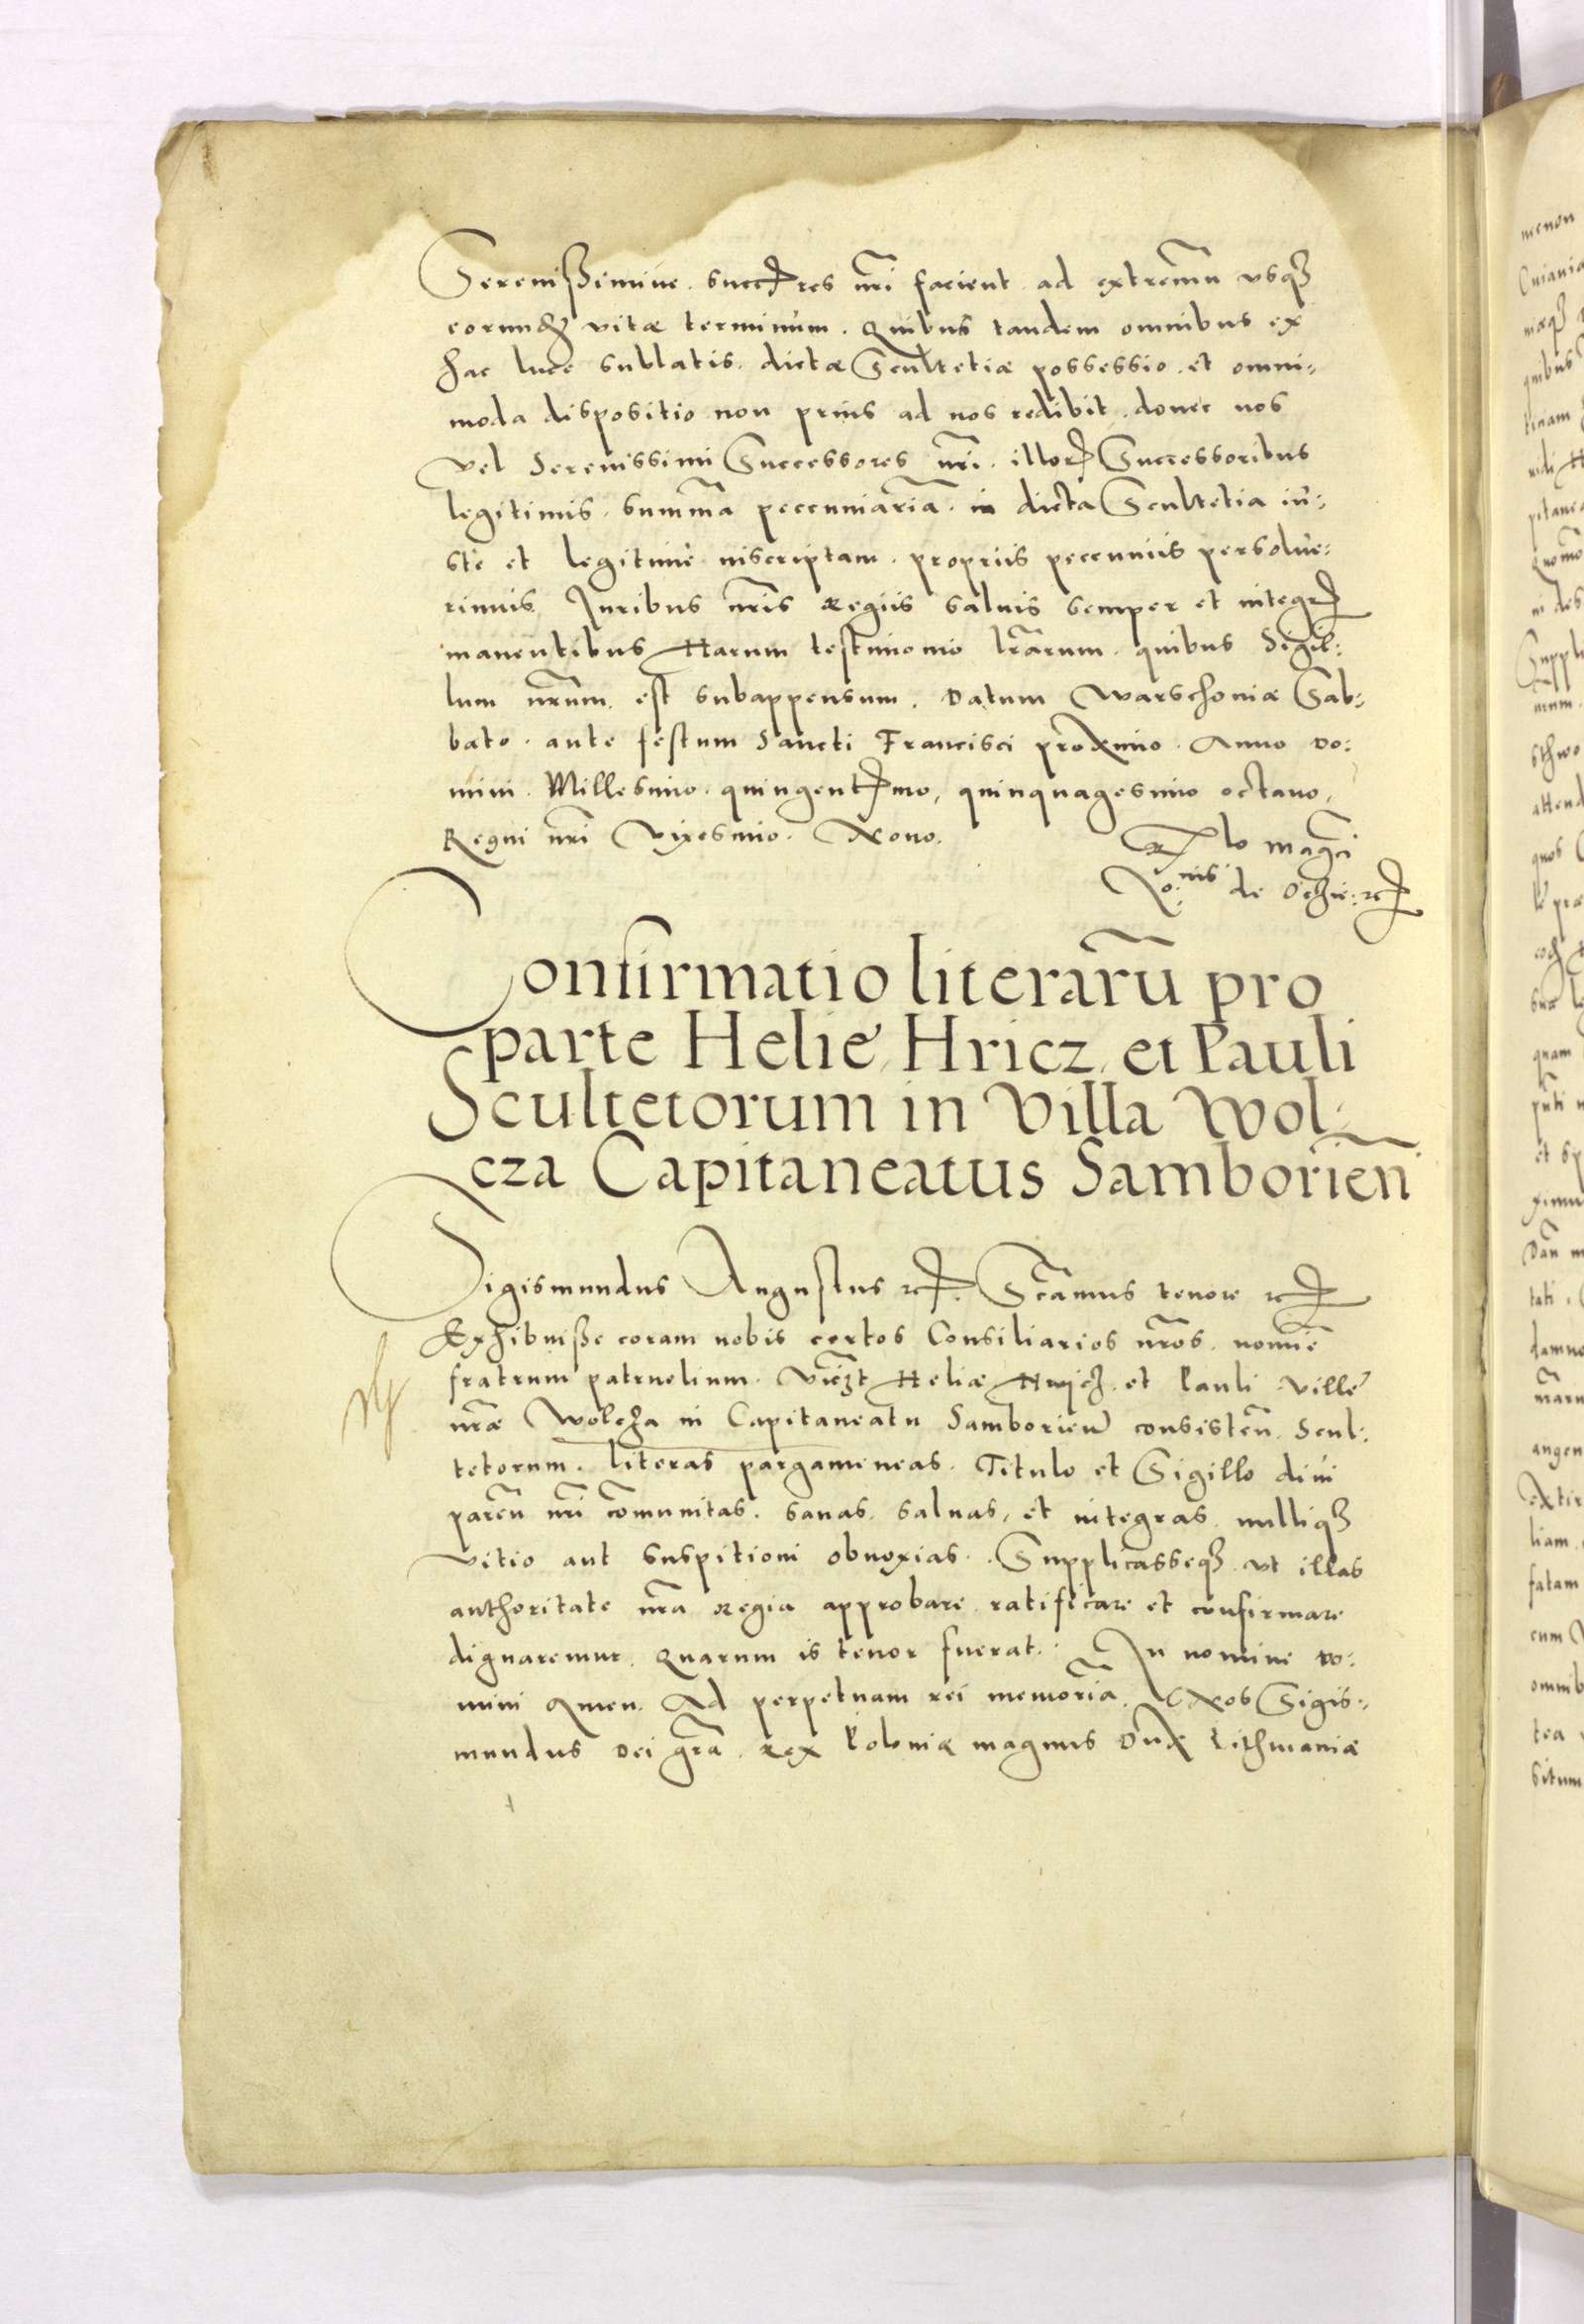 Serenissimive succ res nr̃i facient ad extremũ usq3
eorundẽ vitæ terminum. Quibus tandem omnibus ex
hac luce sublatis dictæ Scultetiæ possessio et omni:
moda dispositio non prius ad nos redibit donec nos
vel Serenissimi Successores nr̃i illor Successoribus
legitimis summã pecuniariã in dicta Scultetia iu:
stè et legitimè inscriptam propriis pecuniis persolve:
rimus Juribus nr̃is Regiis salvis semper et integr
manentibus Harum testimonio lr̃arum quibus Sigil:
lum nr̃um est subappensum. Datum Warschoviæ Sab:
bato ante festum Sancti Francisci proximo Anno Do:
mini Millesimo quingent mo, quinquagesimo octavo,
Regni nr̃i Vixesimo Nono.
lo mag.ci
Jo:nis de Oczie:
Confirmatio literarũ pro
parte Helie, Hricz, et Pauli
Scultetorum in Villa Wol:
cza Capitaneatus Samborieñ
Sigismundus Augustus Sc̃amus tenore
Exhibuisse coram nobis certos Consiliarios nr̃os nomiẽ
fratrum patruelium Helie Hricz et Pauli Ville
nr̃æ Wolcza in Capitaneatu Samborieñ consisteñ Scul:
tetorum literas pargameneas Titulo et Sigillo divi
pareñ nr̃i cõmunitas sanas salvas, et integras nulliq3
vitio aut suspitioni obnoxias Supplicasseq3 ut illas
authoritate nr̃a Regia approbare ratificare et confirmare
dignaremur Quarum is tenor fuerat. In nomine Do:
mini Amen. Ad perpetuam rei memoriã. Nos Sigis:
mundus Dei gr̃a Rex Poloniæ magnus Dux Lithuaniæ